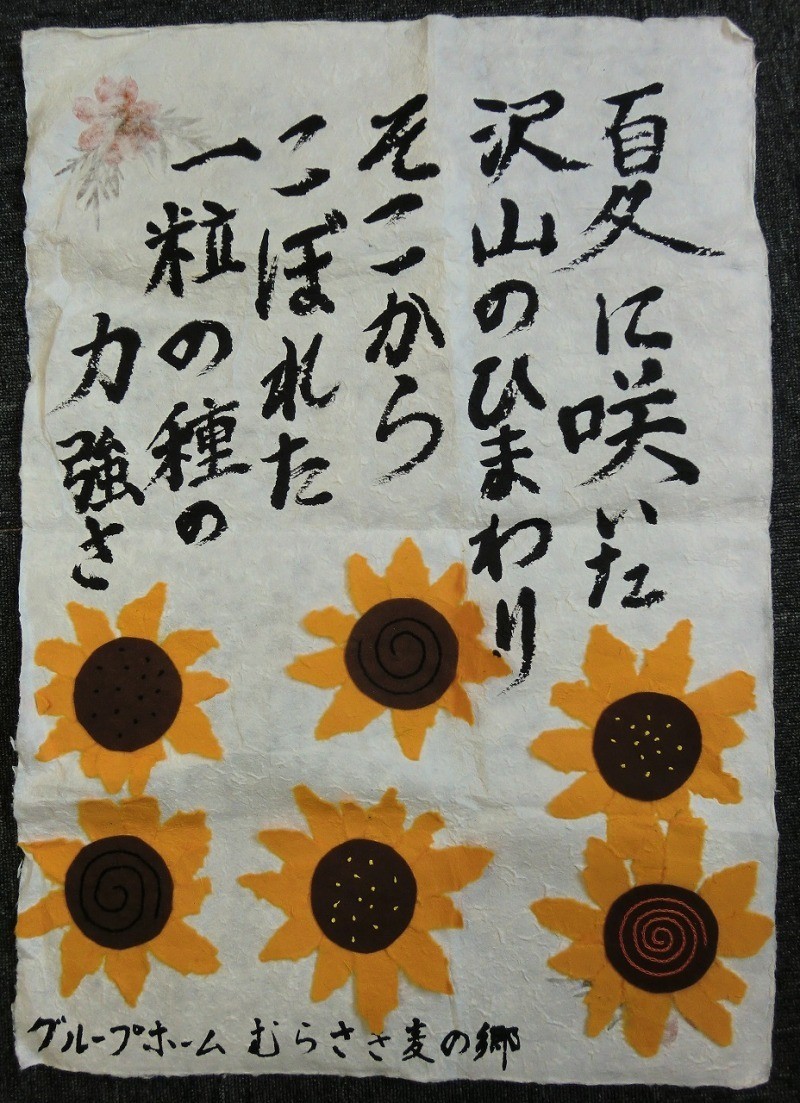 夏に咲いた
沢山のひまわり
そこから
こぼれた
一粒の種の
力強さ
グループホーム むらさき麦の郷